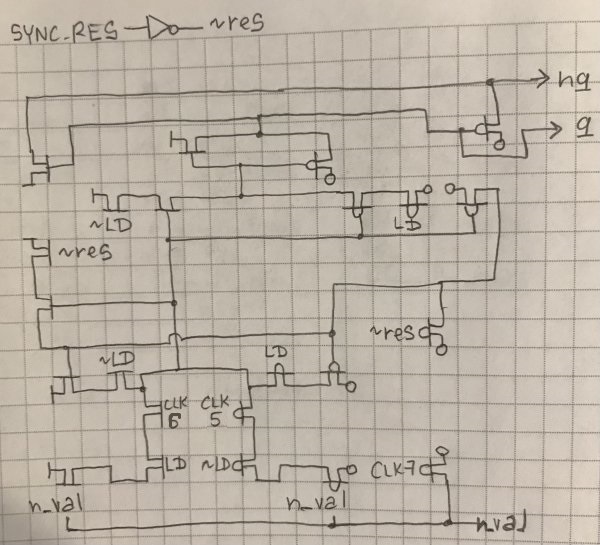 SYNC_RES ~res
nq
q
~LD LD
~res
~res
~LD LD
CLK 6 CLK 5
LD ~LD CLK7
n_val n_val
nval